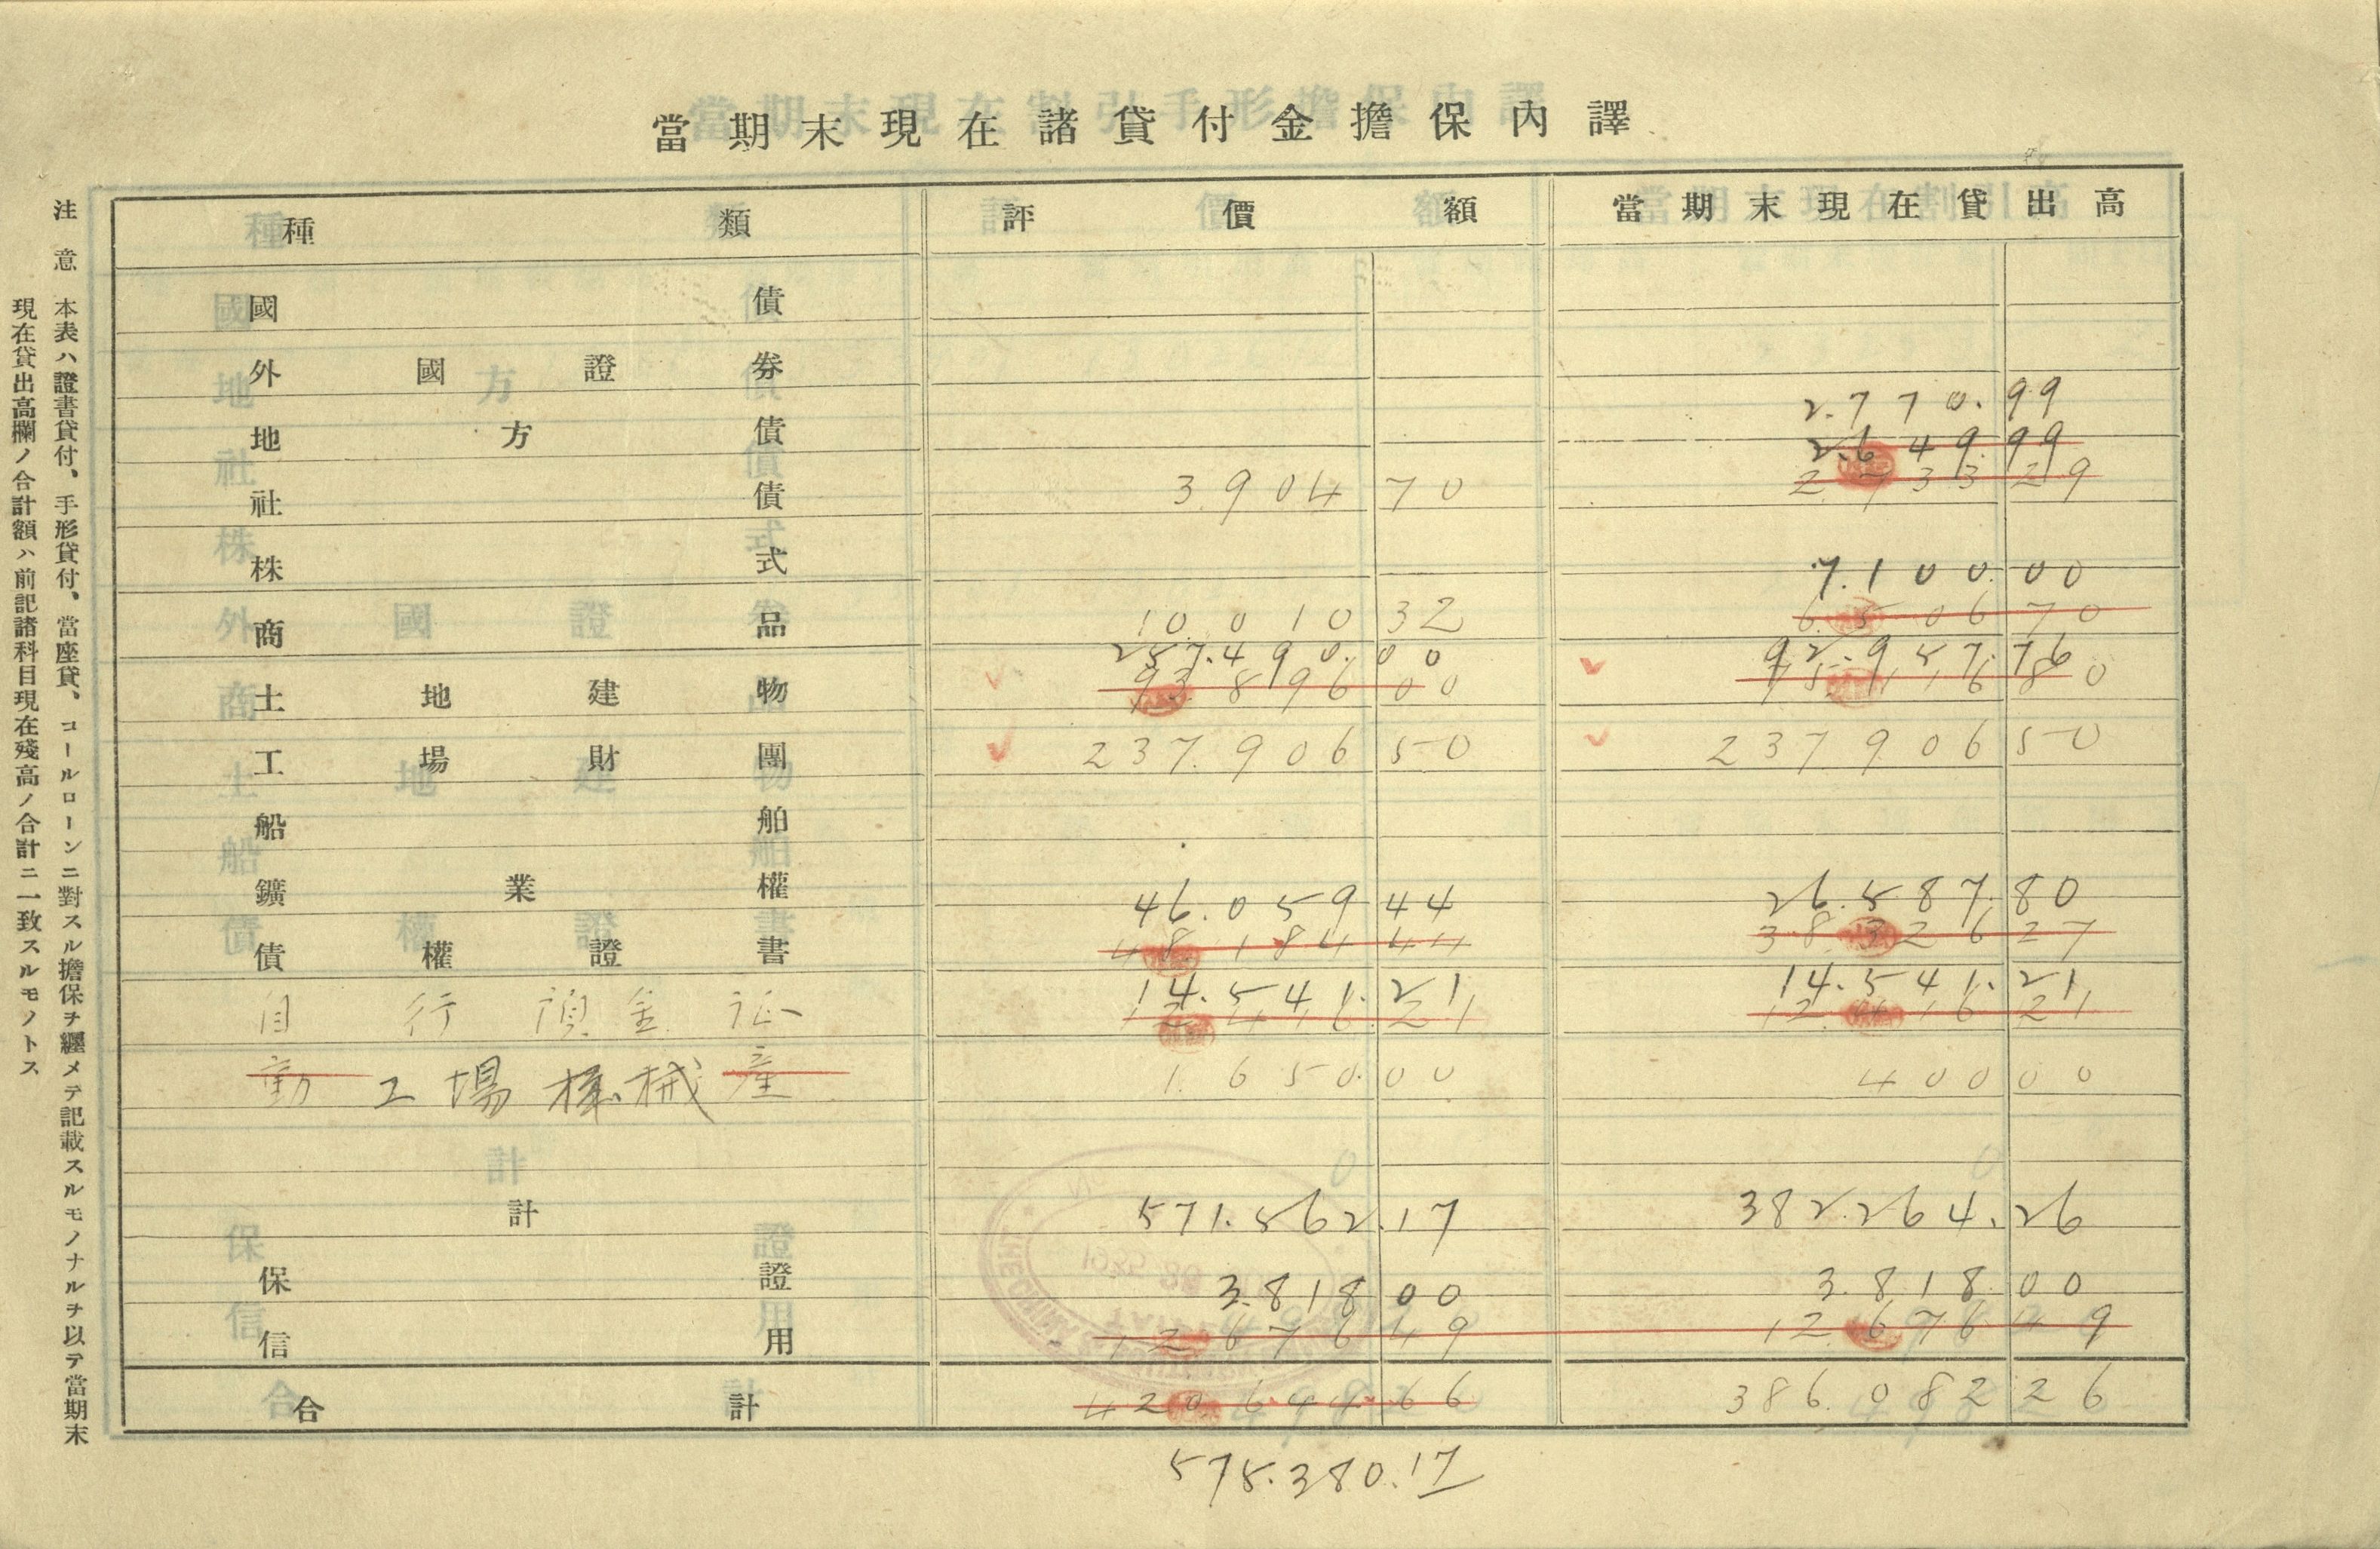 當期末現在諸貸付金擔保內譯
種類 評價額 當期末現在貸出高
國債
外國證券
2.770.99
地方債
2.649.99
社債 3.904 70 2.733 29
株式 7.100.00
商品 10.010 32 6.506 70
257.490.00 92.957.76
土地建物 93.896 00 75.116 80
工場財團 237.906 50 237.906 50
船舶
鑛業權 46.059 44 26.587.80
債權證書 48.184 44 38.326 27
14.541.21 14.541.21
自行預金証 12.416.21 12.416 21
動工場機械產 1.650.00 400 00
計 571.562.17 382.264.26
保證 3.818 00 3.818 00
信用 12.676 49 12.676 49
合計 420.644.66 386.082 26
575.380.17
注意 本表ハ證書貸付、手形貸付、當座貸、コールローンニ對スル擔保ヲ纒メテ記載スルモノナルヲ以テ當期末
現在貸出高欄ノ合計額ハ前記諸科目現在殘高ノ合計ニ一致スルモノトス